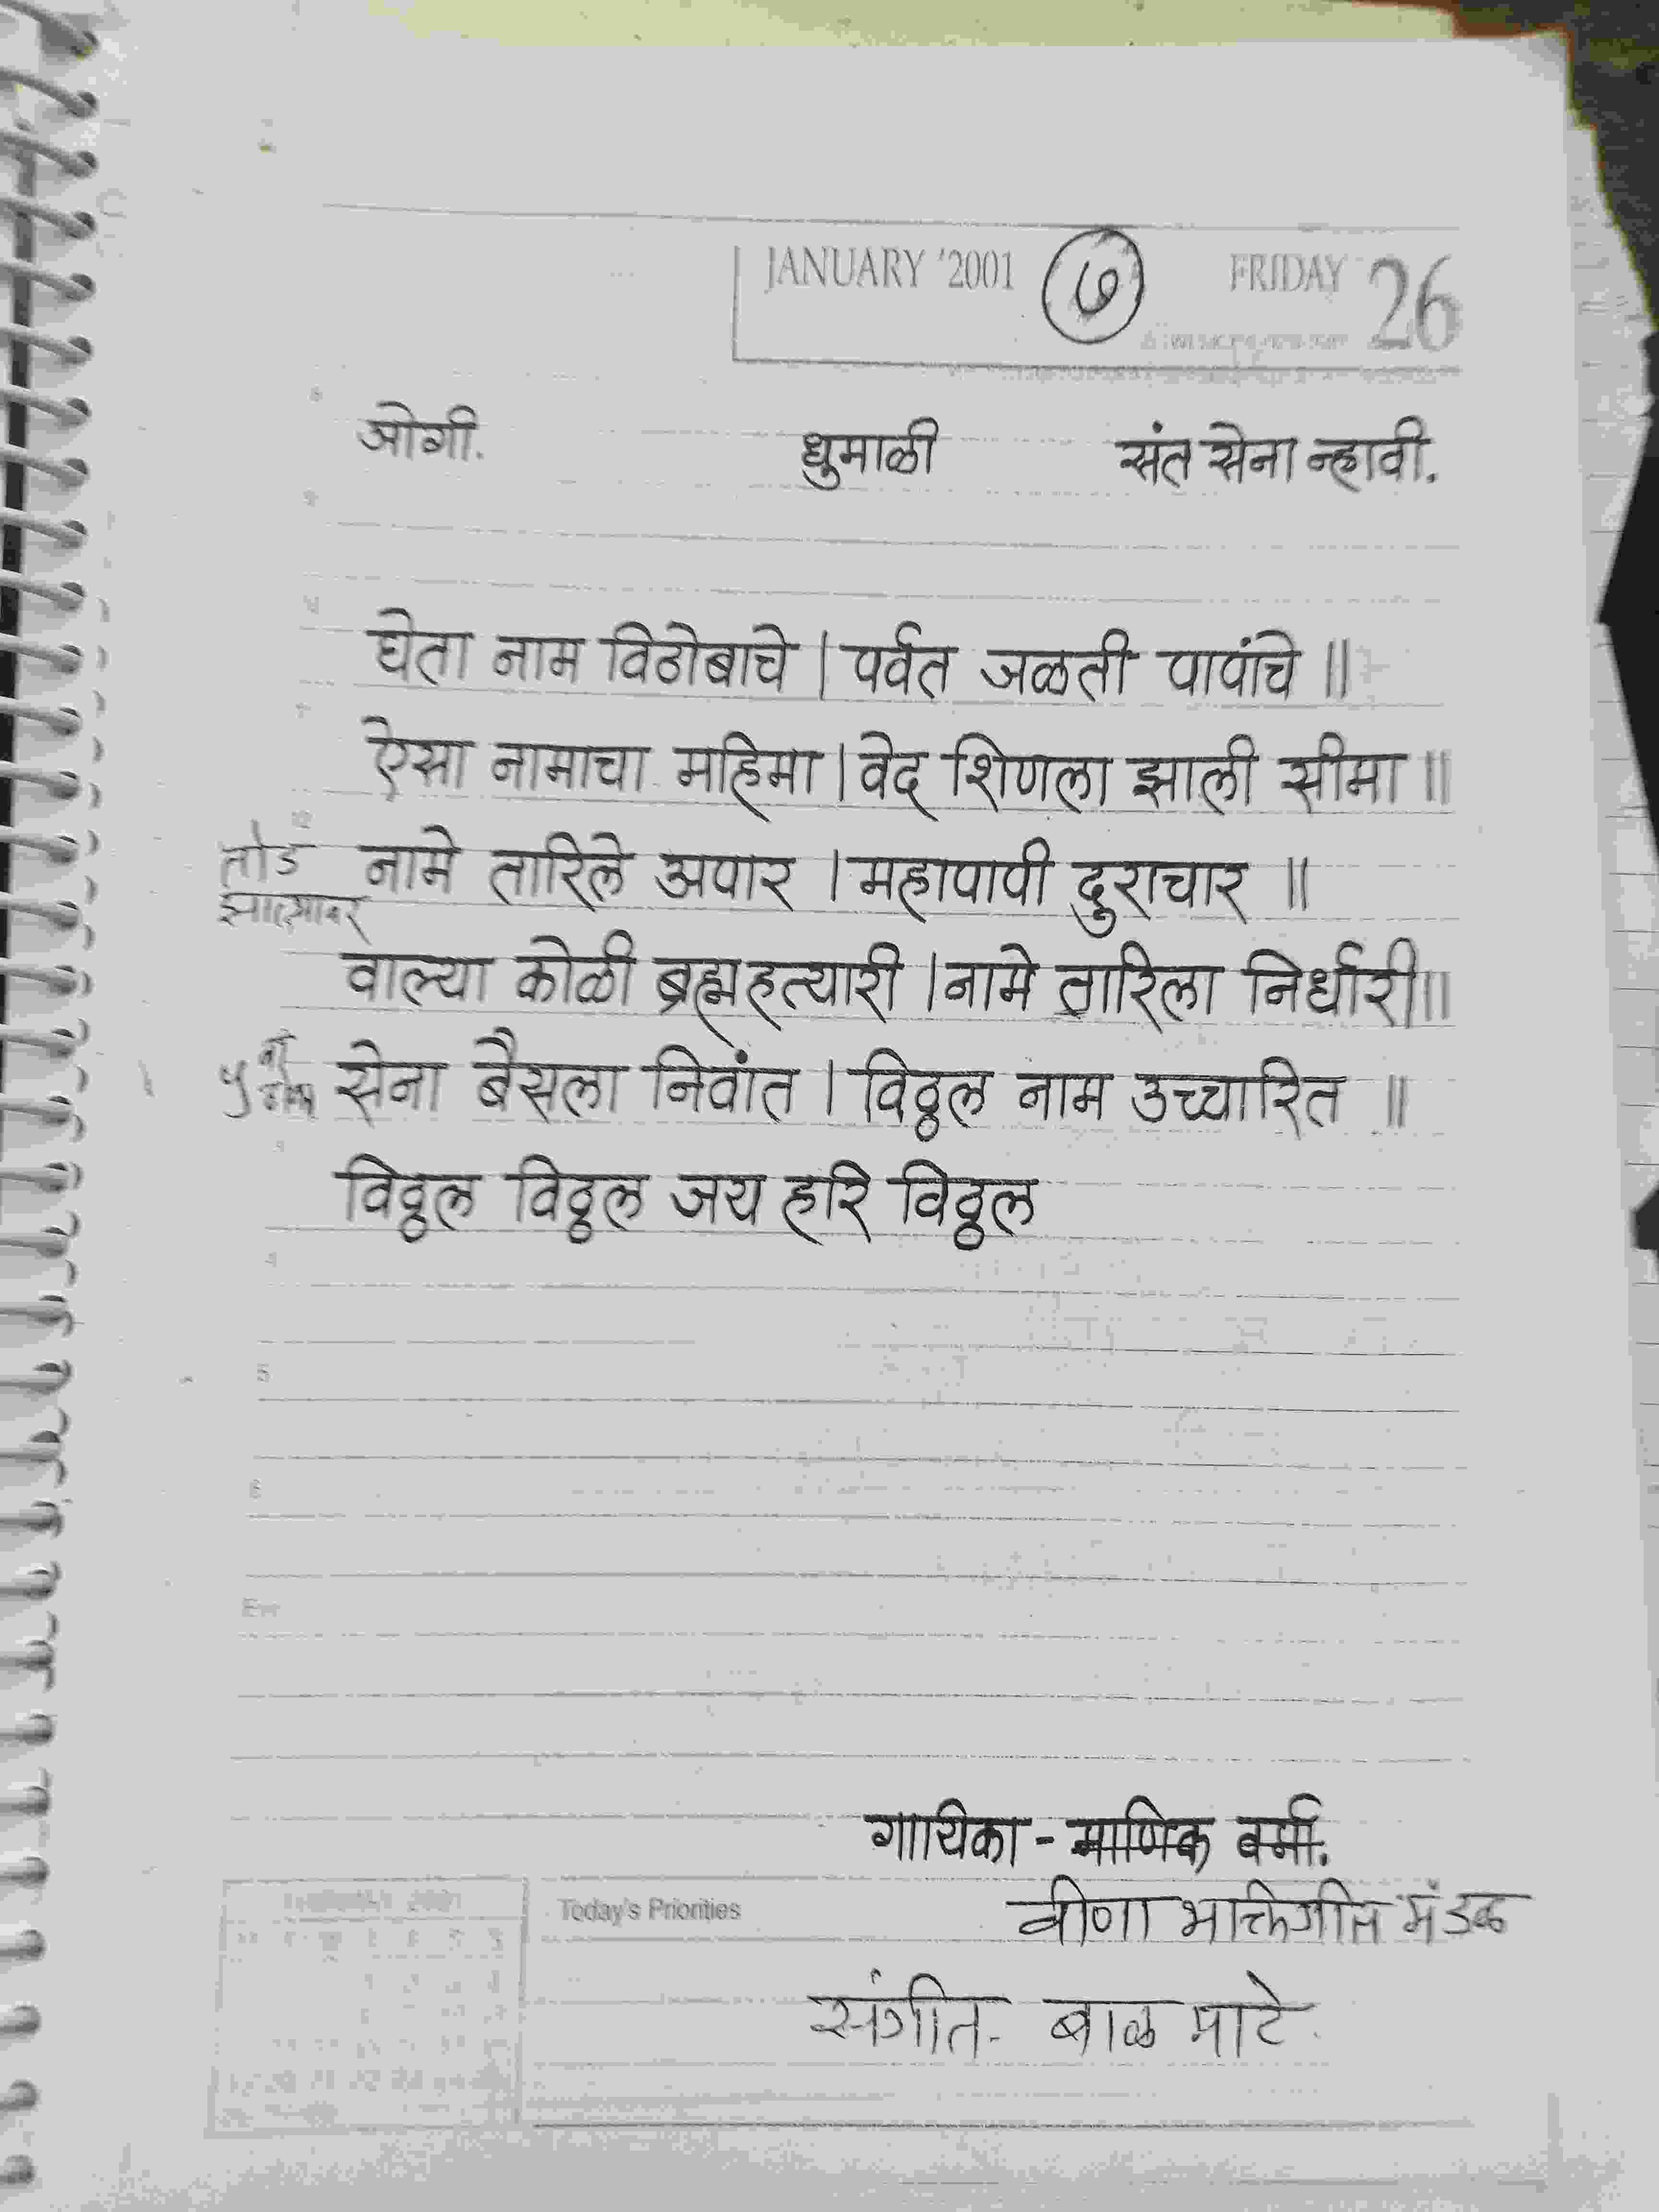 JANUARY '2001 ७ FRIDAY 26
जोगी. धुमाळी संत सेना न्हावी.
घेता नाम विठोबाचे | पर्वत जळती पापांचे ||
ऐसा नामाचा महिमा | वेद शिणला झाली सीमा ||
तोड झाल्यावर
नामे तारिले अपार | महापापी दुराचार ||
वाल्या कोळी ब्रह्महत्यारी | नामे तारिला निर्धारी ||
सेना बैसला निवांत | विठ्ठल नाम उच्चारित ||
विठ्ठल विठ्ठल जय हरि विठ्ठल
5
6
गायिका - माणिक वर्मा.
Today's Priorities वीणा भक्तिगीत मंडळ
संगीत - बाळ माटे.